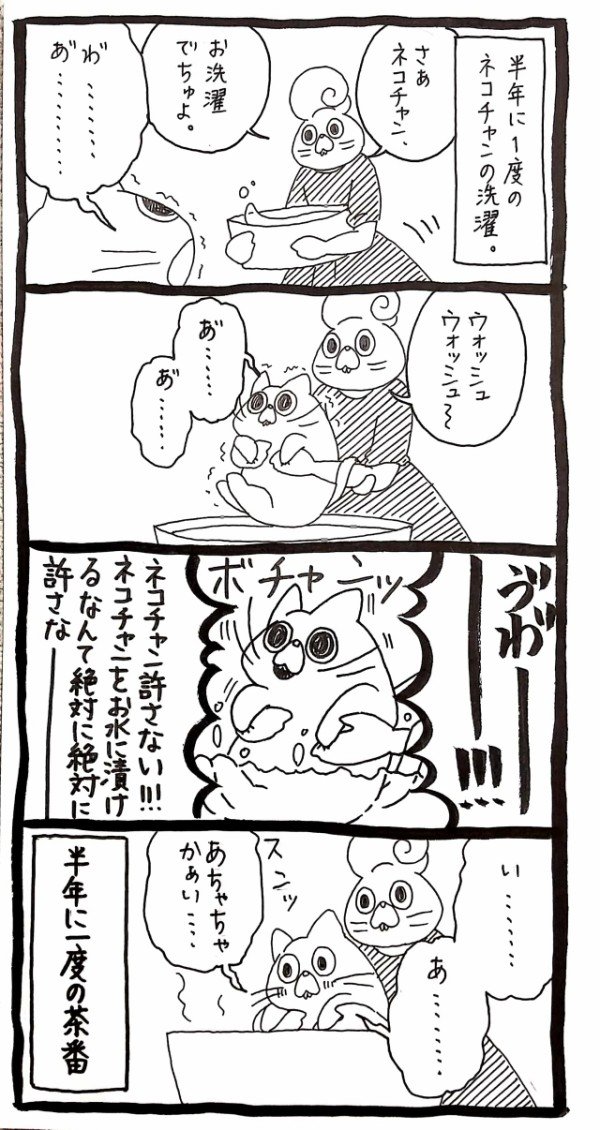 半年に1度の
ネコチャンの洗濯。
さぁ
ネコチャン、
お洗濯
でちゅよ。
わ゛…………
あ゛…………
ウォッシュ
ウォッシュ〜
あ゛……
あ゛……
ゔわ゛ーー!!!
ボチャンッ
ネコチャン許さない!!!
ネコチャンをお水に漬け
るなんて絶対に絶対に
許さなーー
い……
あ………
スンッ
あちゃちゃ
かぁい……
半年に一度の茶番